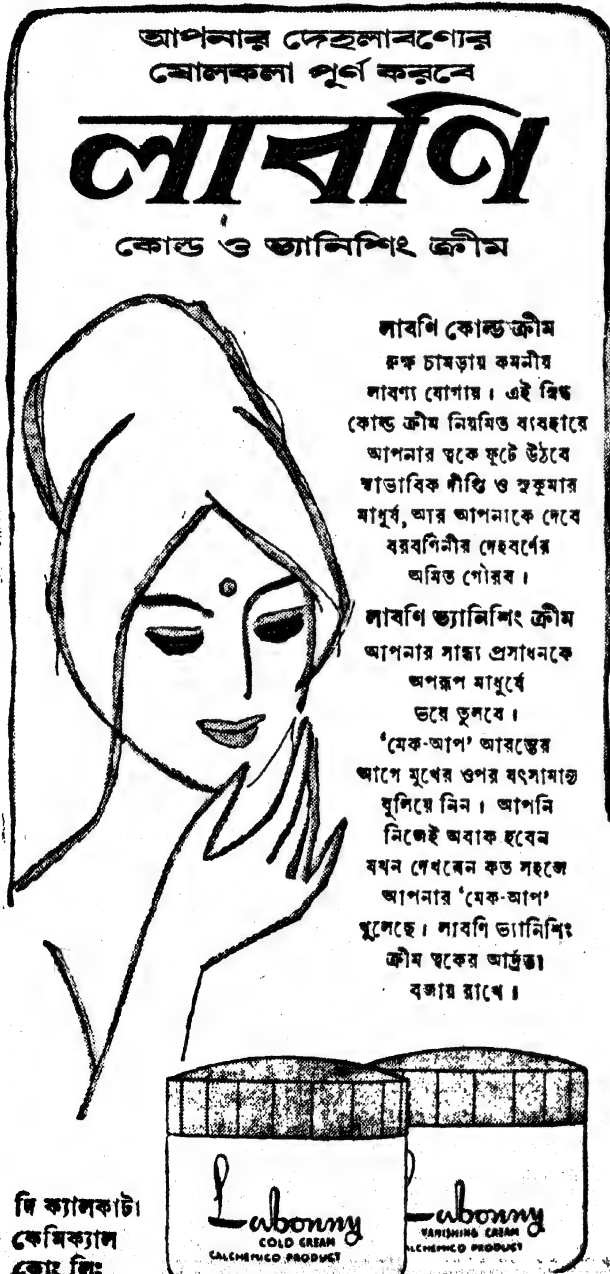 আপনার দেহলাবণ্যের
ষোলকলা পূর্ণ করবে
লাবণি
কোল্ড ও ভ্যানিশিং ক্রীম
লাবণি কোল্ড ক্রীম
রুক্ষ চামড়ায় কমনীয়
লাবণ্য যোগায়। এই স্নিগ্ধ
কোল্ড ক্রীম নিয়মিত ব্যবহারে
আপনার ত্বকে ফুটে উঠবে
স্বাভাবিক দীপ্তি ও সুকুমার
মাধুর্য, আর আপনাকে দেবে
বরবর্ণিনীর দেহবর্ণের
অমিত গৌরব।
লাবণি ভ্যানিশিং ক্রীম
আপনার সান্ধ্য প্রসাধনকে
অপরূপ মাধুর্যে
ভরে তুলবে।
‘মেক-আপ’ আরম্ভের
আগে মুখের ওপর যৎসামান্য
বুলিয়ে নিন। আপনি
নিজেই অবাক হবেন
যখন দেখবেন কত সহজে
আপনার ‘মেক-আপ’
খুলেছে। লাবণি ভ্যানিশিং
ক্রীম ত্বকের আর্দ্রতা
বজায় রাখে।
Labonny
COLD CREAM
CALCHEMICO PRODUCT
Labonny
VANISHING CREAM
ALCHEMICO PRODUCT
দি ক্যালকাটা
কেমিক্যাল
কোং লিঃ